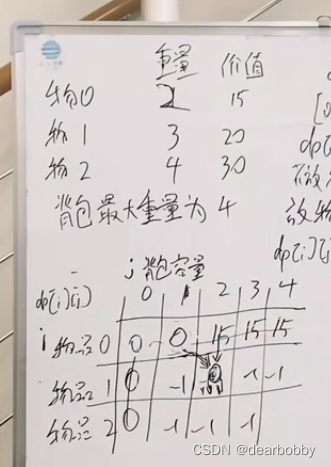 重量 价值
物0 2 15
物1 3 20
物2 4 30
背包最大重量为4
dp[
放物
dp[i][j
j背包容量
dp[i][j] 0 1 2 3 4
i 物品0 0 0 15 15 15
物品1 0 -1 -1 -1
物品2 0 -1 -1 -1
CSDN @dearbobby